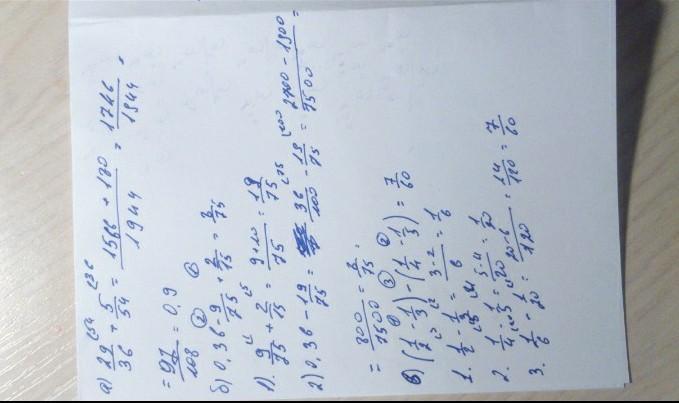 а) 29/36 + 5/54 = (1566 + 180)/1944 = 1746/1944 =
= 97/108 = 0,9
б) 0,36 - 9/75 + 2/15 = 8/75
1). 9/75 + 2/15 = (9+10)/75 = 19/75
2) 0,36 - 19/75 = 36/100 - 19/75 = (2700 - 1900)/7500 =
= 800/7500 = 8/75.
в) (1/2 - 1/3) - (1/4 - 1/5) = 7/60
1. 1/2 - 1/3 = (3-2)/6 = 1/6
2. 1/4 - 1/5 = (5-4)/20 = 1/20
3. 1/6 - 1/20 = (20-6)/120 = 14/120 = 7/60